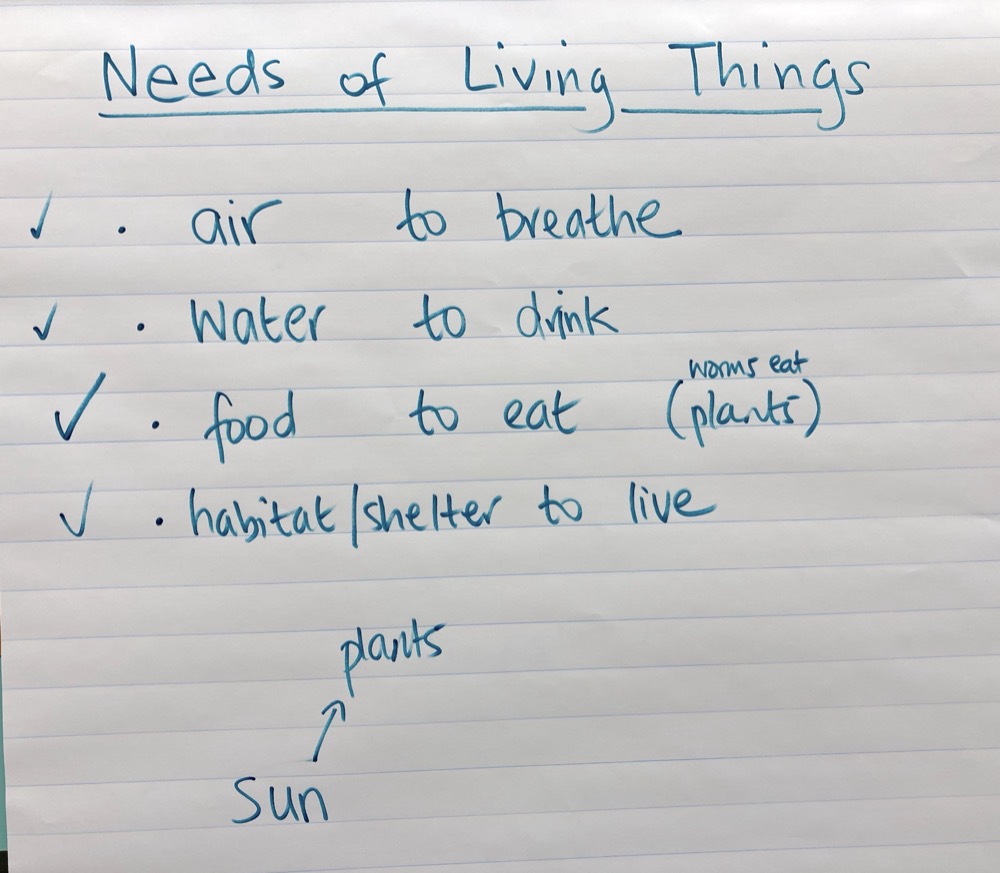 Needs of Living Things
✓ · air to breathe
✓ · Water to drink
worms eat
✓ · food to eat (plants)
✓ · habitat/shelter to live
plants
↑
Sun